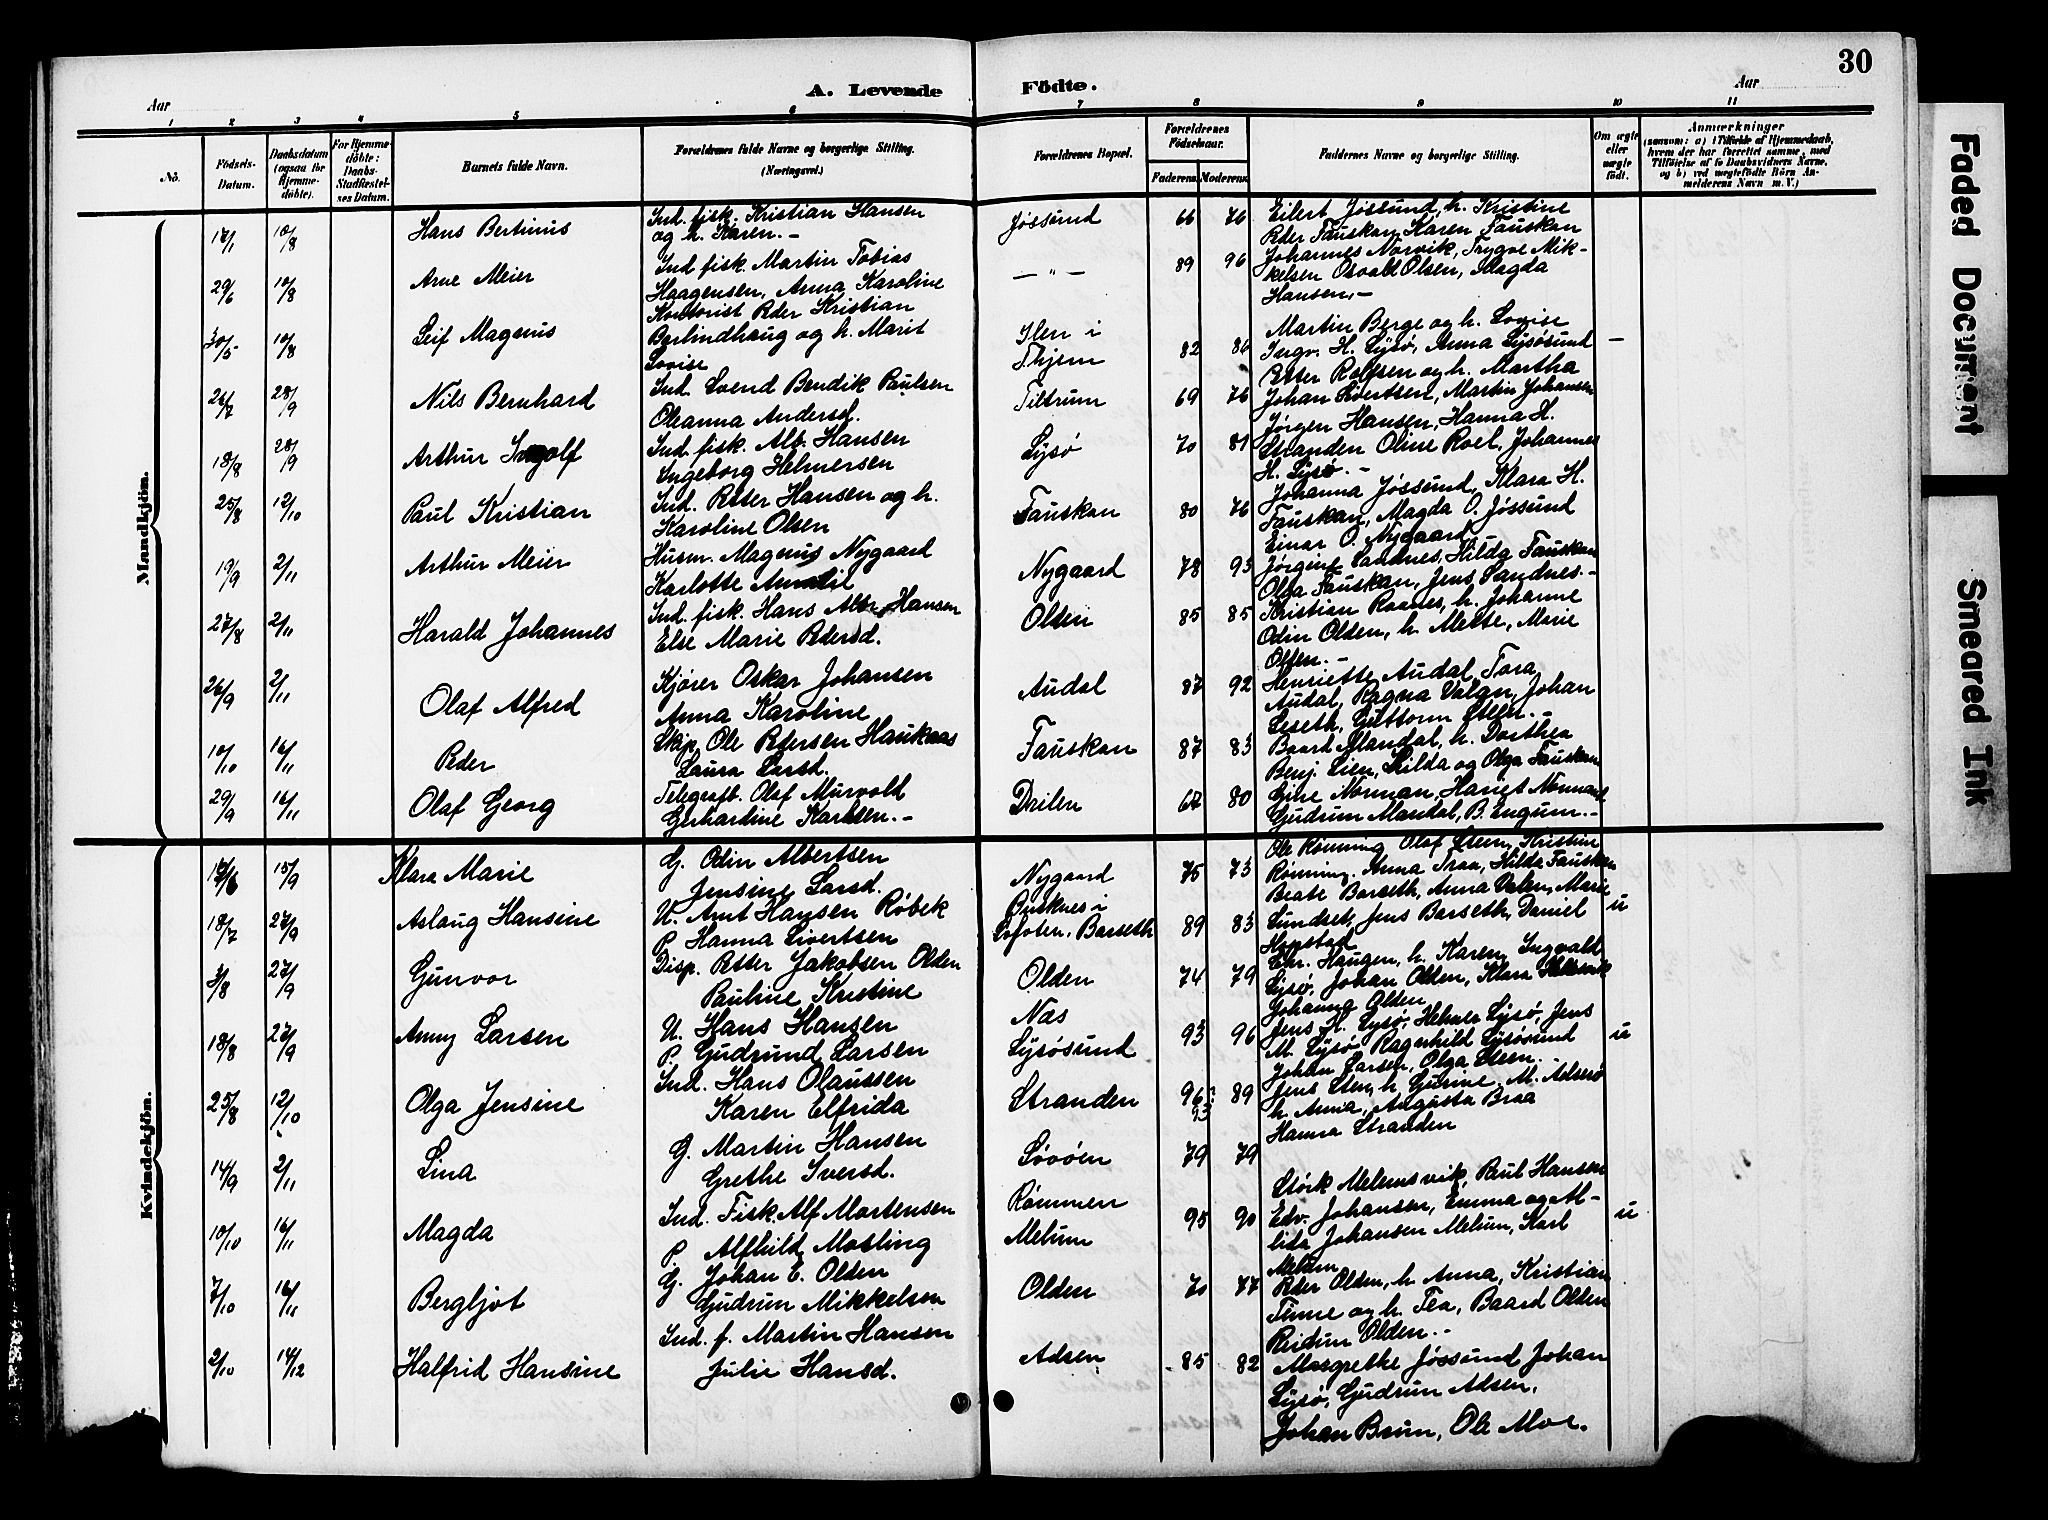 30
Aar
A. Levende Födte.
Aar
1 2 3 4 5 6 7 8 9 10 11
No.
Födsels-Datum.
Daabsdatum (ogsaa for Hjemmedöbte).
For Hjemmedöbte: Daabs-Stadfæstelses Datum.
Barnets fulde Navn.
Forældrenes fulde Navne og borgerlige Stilling.
(Næringsvei.)
Forældrenes Bopæl.
Forældrenes Födselsaar.
Faderens. Moderens.
Faddernes Navne og borgerlige Stilling.
Om ægte eller uægte födt.
Anmærkninger
(saasom: a) i Tilfælde af Hjemmedaab,
hvem der har forrettet samme, med
Tilföielse af to Daabsvidners Navne,
og b) ved uægtefödte Börn An-
melderens Navn m. V.)
Mandkjön.
17/1 10/8 Hans Bertinus
Ind. fisk. Kristian Hansen
og h. Karen. -
Jøssund 66 76
Eilert Jøssund, h. Kristine
Peder Fauskan, Karen Fauskan
29/6 10/8 Arne Meier
Ind. fisk. Martin Tobias
Haagensen, Anna Karoline
— " — 89 96
Johannes Norvik, Trygve Mik-
kelsen Osvald Olsen, Magda
Hansen, -
30/5 10/8 Leif Magnus
Kontorist Peder Kristian
Berlindhaug og h. Marit
Lovise
Ilen i
Thjem 82 86
Martin Berge og h. Lovise
Ingv. H. Lysø, Anna Lysøsund
Petter Rolfsen og h. Martha
26/7 28/9 Nils Bernhard
Ind. Svend Bendik Paulsen
Oleanna Andersd.
Tiltrum 69 76
Johan Sivertsen, Martin Johansen
Jørgen Hansen, Hanna H.
18/8 28/9 Arthur Ingolf
Ind. fisk. Alb. Hansen
Ingeborg Helmersen
Lysø 70 81
Stranden Oline Roel, Johannes
H. Lysø. -
25/8 12/10 Paul Kristian
Ind. Peter Hansen og h.
Karoline Olsen
Fauskan 80 76
Johanna Jøssund, Klara H.
Fauskan, Magda O. Jøssund
Einar O. Nygaard,
19/9 2/11 Arthur Meier
Husm. Magnus Nygaard
Karlotte
Nygaard 78 93
Jørgine Sandnes, Hilda Fauskan
Olga Fauskan, Jens Sandnes. -
27/8 2/11 Harald Johannes
Ind. fisk. Hans Albr. Hansen
Else Marie Pedersd.
Olden 85 85
Kristian Raanes, h. Johanne
Odin Olden, h. Mette, Marie
Olsen. -
26/9 2/11 Olaf Alfred
Kjører Oskar Johansen
Anna Karoline
Audal 87 92
Henriette Audal, Tora
Audal, Ragna Valan, Johan
Leseth, Guttorm Steen. -
10/10 16/11 Peder
Skip. Ole Pedersen Haukaas
Laura Larsd.
Fauskan 87 83
Baard Mandal, h. Dorthea
Benj. Lien, Hilda og Olga Fauskan
29/9 16/11 Olaf Georg
Telegrafb. Olaf Murvold
Gerhardine Karlsen. -
Drilen 67 80
Eine Norman, Hariet Normand
Gudrum Mandal, B. Engum. -
Kvindekjön.
15/9 Klara Marie
G. Odin Albertsen
Jensine Larsd.
Nygaard 75 73
Ole Rønning Olaf Steen, Kristine
Rønning. Anna Traa, Hilda Fauskan
18/7 27/9 Aslaug Hansine
U. Amt Hansen Røbek
P. Hanna Sivertsen
Busknes i
Lofoten. Barseth 89 83
Beate Barseth, Anna Valen, Marie
Sundset, Jens Barseth, Daniel
Hopstad
u
3/8 27/9 Gunvor
Disp. Petter Jakobsen Olden
Pauline Kristine
Olden 74 79
Chr. Haugen, h. Karen, Ingvald
Lysø, Johan Olden, Klara
Johanna Olden
18/8 27/9 Anny Larsen
U. Hans Hansen
P. Gudrund Larsen
Næs
Lysøsund 93 96
Jens H. Lysø, Helmer Lysø, Jens
M. Lysø Ragnhild Lysøsund
Johan Larsen, Olga Steen.
u
25/8 12/10 Olga Jensine
Ind. Hans Olaussen
Karen Elfrida
Stranden 96 93 89
Jens Sten, h Gurine, M. Adserø
h. Anna, Augusta Braa
Hanna Stranden
14/9 2/11 Lina
G. Martin Hansen
Grethe Iversd.
Sovøen 79 79
10/10 16/11 Magda
Ind. Fisk. Alf Mortensen
P. Alfhild Mosling
Rømmen
Melum 95 90
Størk Melumsvik, Paul Hansen
Edv. Johansen, Emma og Al-
lida Johansen Melum, Karl
Melum
u
7/10 16/11 Bergljot
G. Johan E. Olden
Gudrun Mikkelsen
Olden 70 77
Peder Olden, h. Anna, Kristian
Tinne og h. Tea, Baard Olden
Reidun Olden. -
2/10 14/12 Halfrid Hansine
Ind. f. Martin Hansen
Julie Hansd.
Adsen 85 82
Margrethe Jøssund Johan
Lysø, Gudrun Adsen,
Johan Brun, Ole Moe.
Faded Document
Smeared Ink